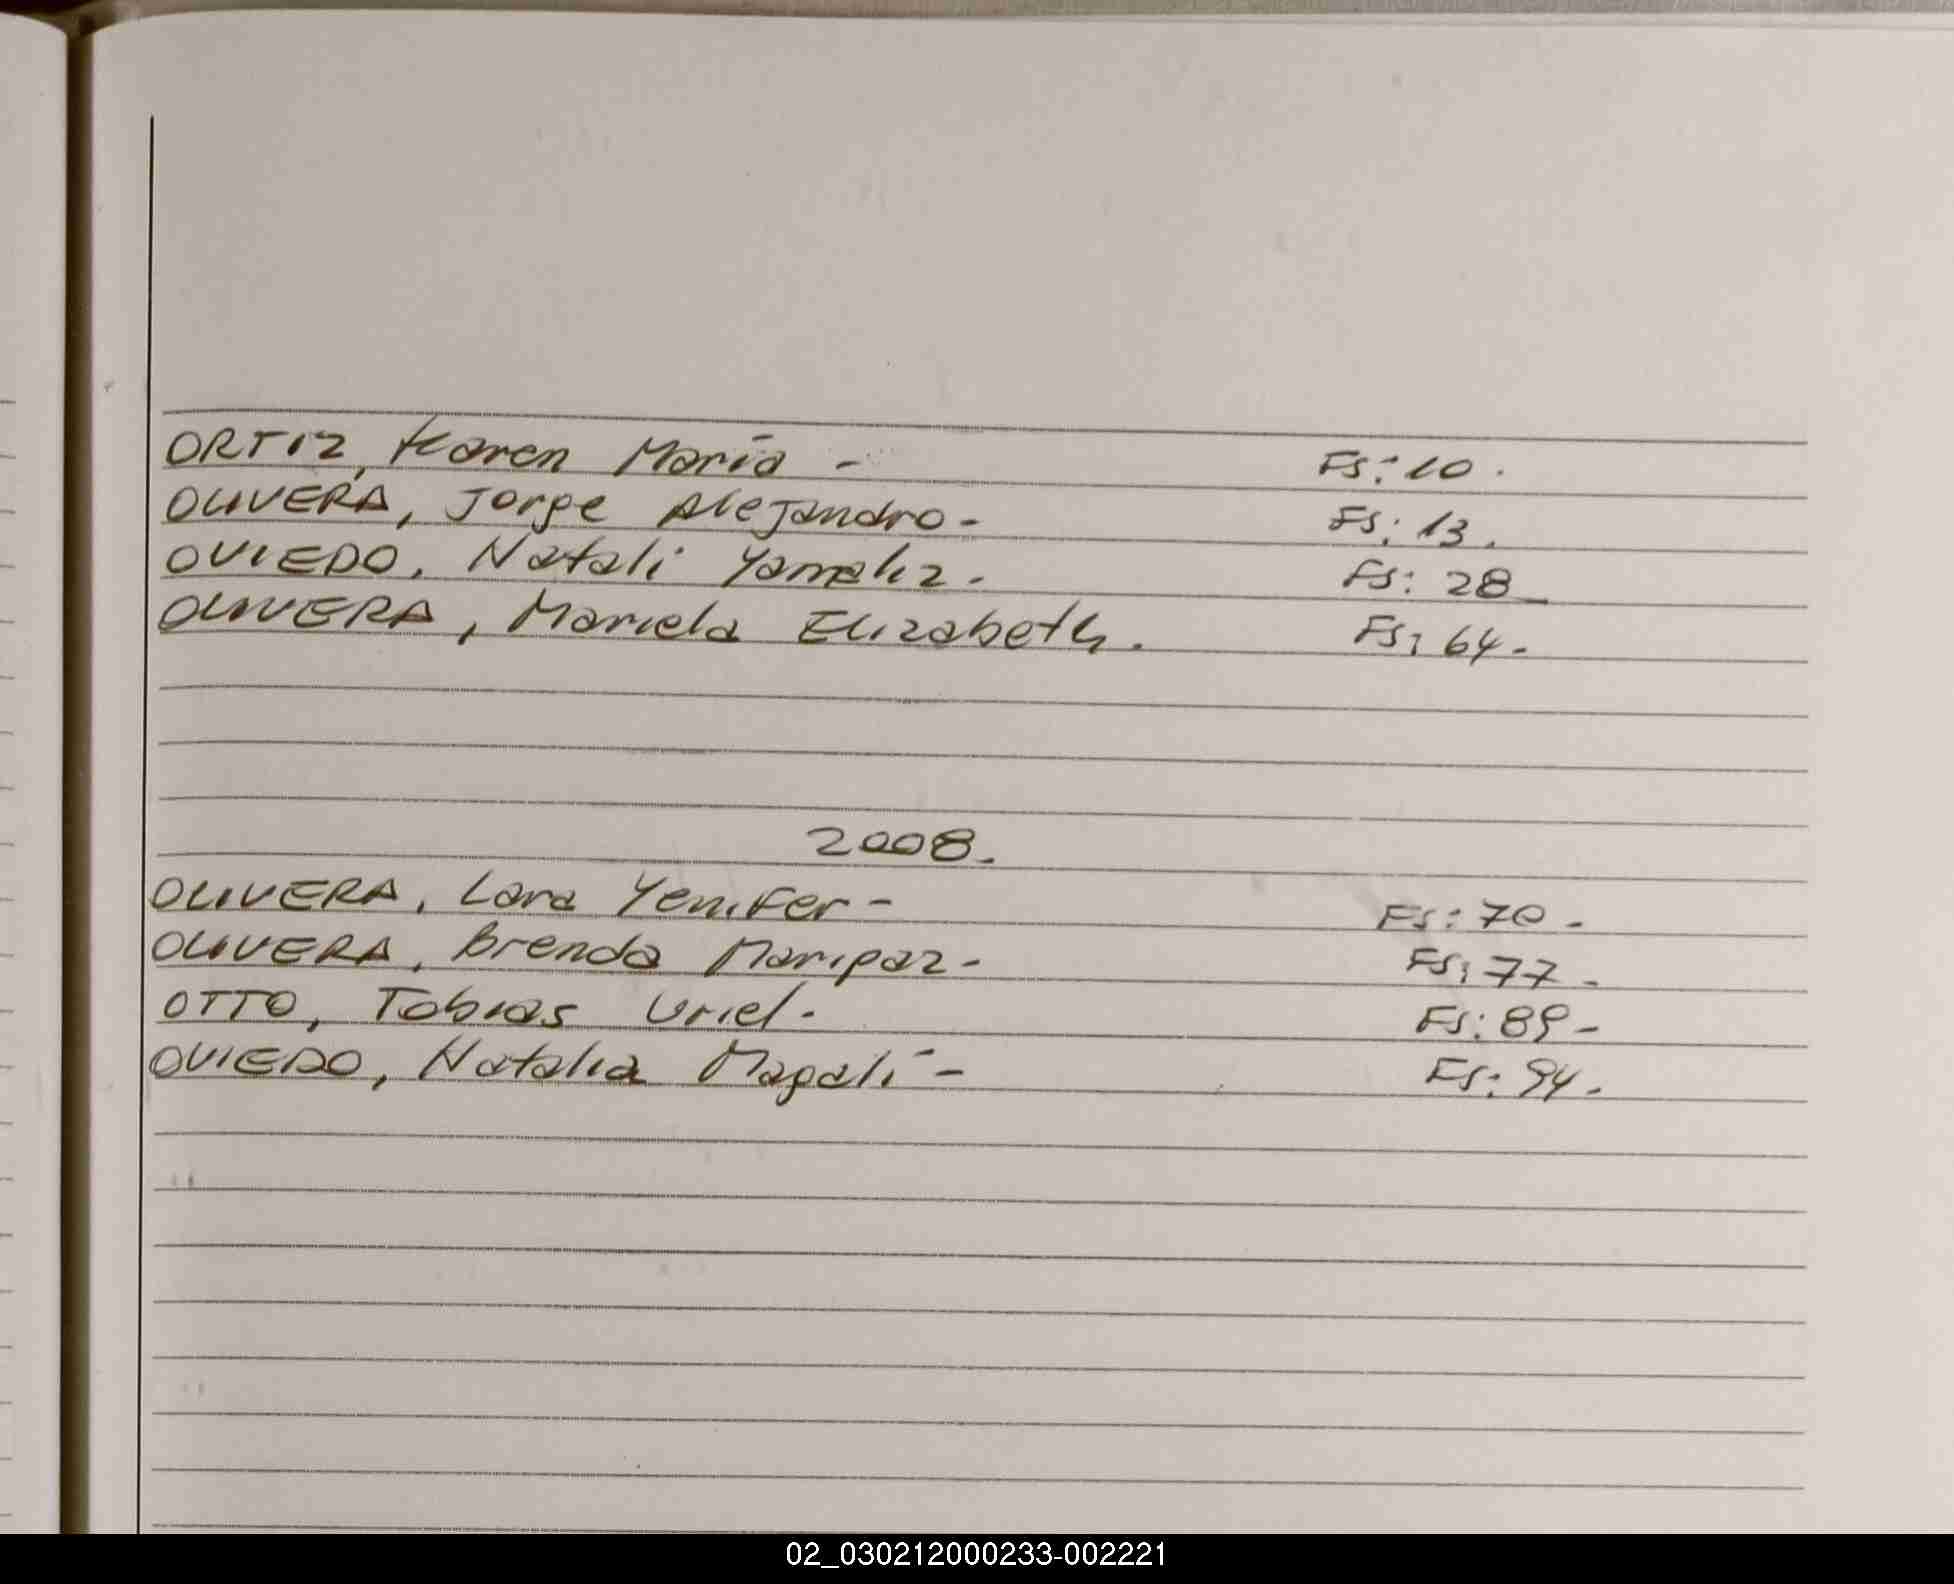 ORTIZ, Karen María - Fs: 10.
OLIVERA, Jorge Alejandro- Fs: 13.
OVIEDO, Natali Yamaliz. Fs: 28_
OLIVERA, Mariela Elizabeth. Fs: 64-
2008.
OLIVERA, Lara Yenifer- Fs: 70-
OLIVERA, Brenda Maripaz- Fs: 77-
OTTO, Tobias Uriel. Fs: 89-
OVIEDO, Natalia Magalí- Fs: 94.
02_030212000233-002221